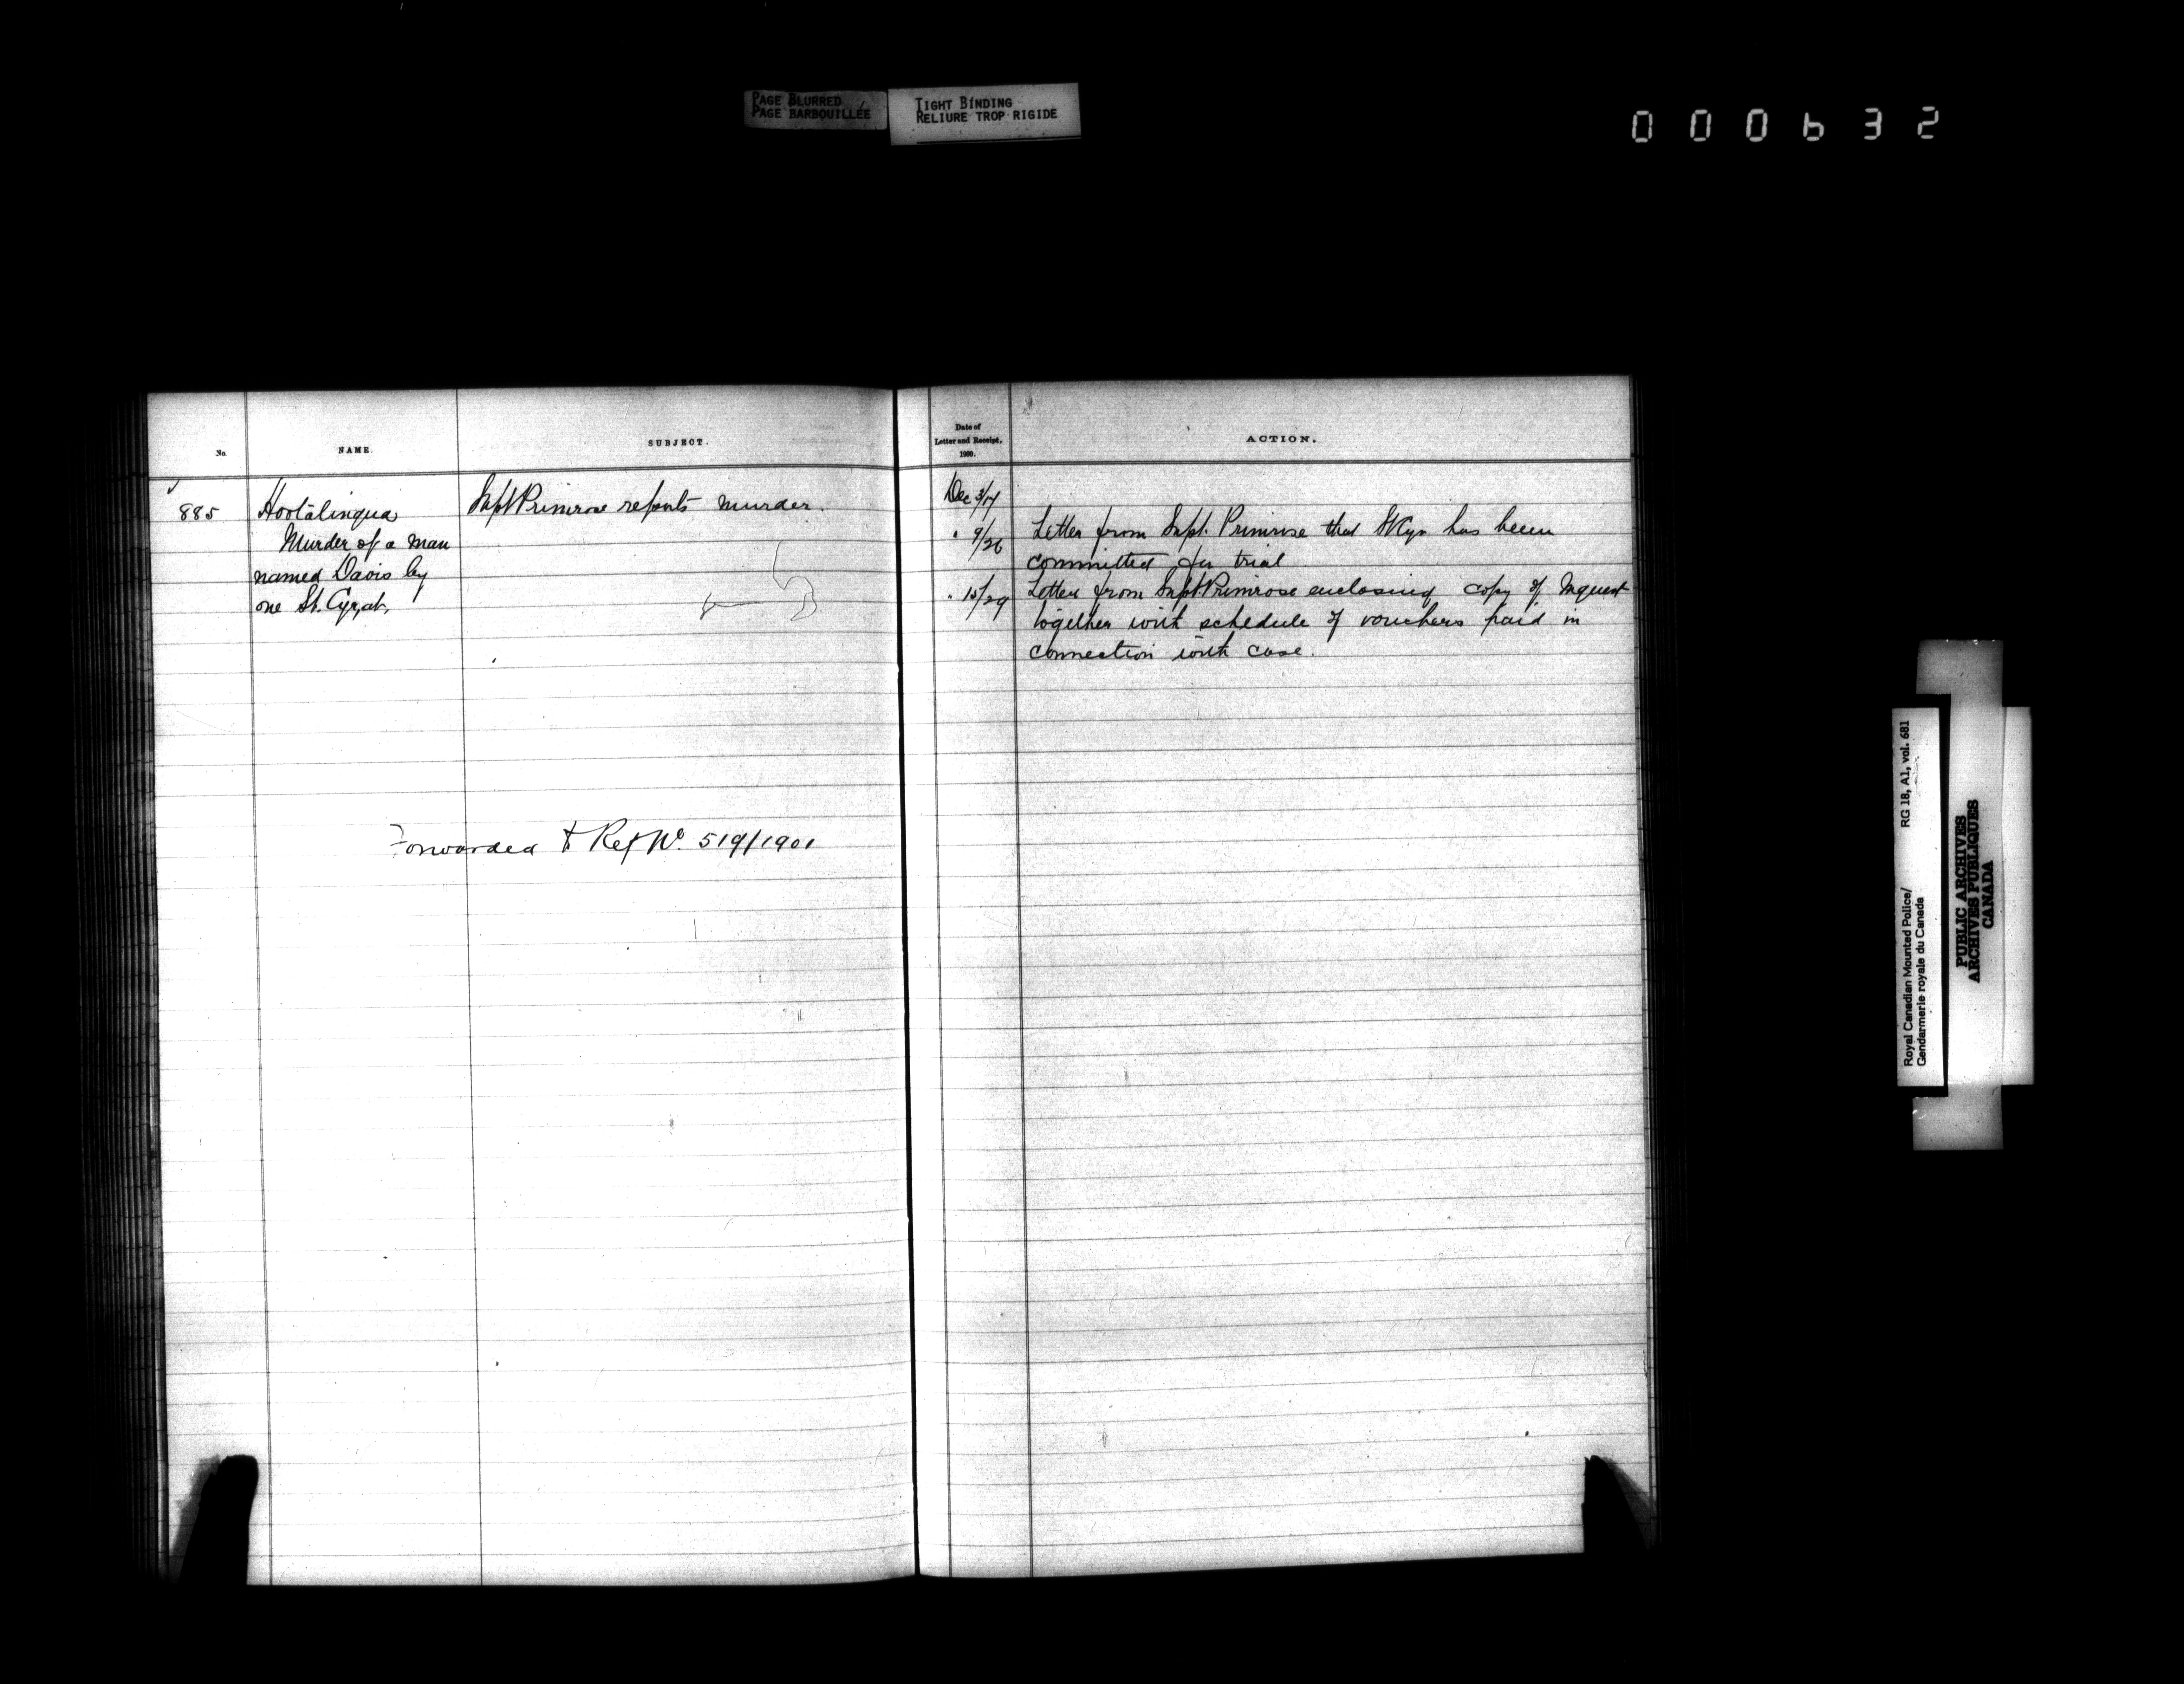 PAGE BLURRED
PAGE BARBOUILLÉE
TIGHT BINDING
RELIURE TROP RIGIDE
000632
No.
NAME.
SUBJECT.
Date of
Letter and Receipt,
1900.
ACTION.
885
Hootalinqua
Murder of a man
named Davis by
one St. Cyr, at,
Supt Primrose reports murder.
Dec 3/17
" 9/26 Letter from Supt. Primrose that St Cyr has been
committed for trial
" 15/29 Letter from Supt. Primrose enclosing copy of Inquest
together with schedule of vouchers paid in
connection with case.
Forwarded to Ref No. 519/1901
Royal Canadian Mounted Police/ RG 18, A1, vol. 681
Gendarmerie royale du Canada
PUBLIC ARCHIVES
ARCHIVES PUBLIQUES
CANADA